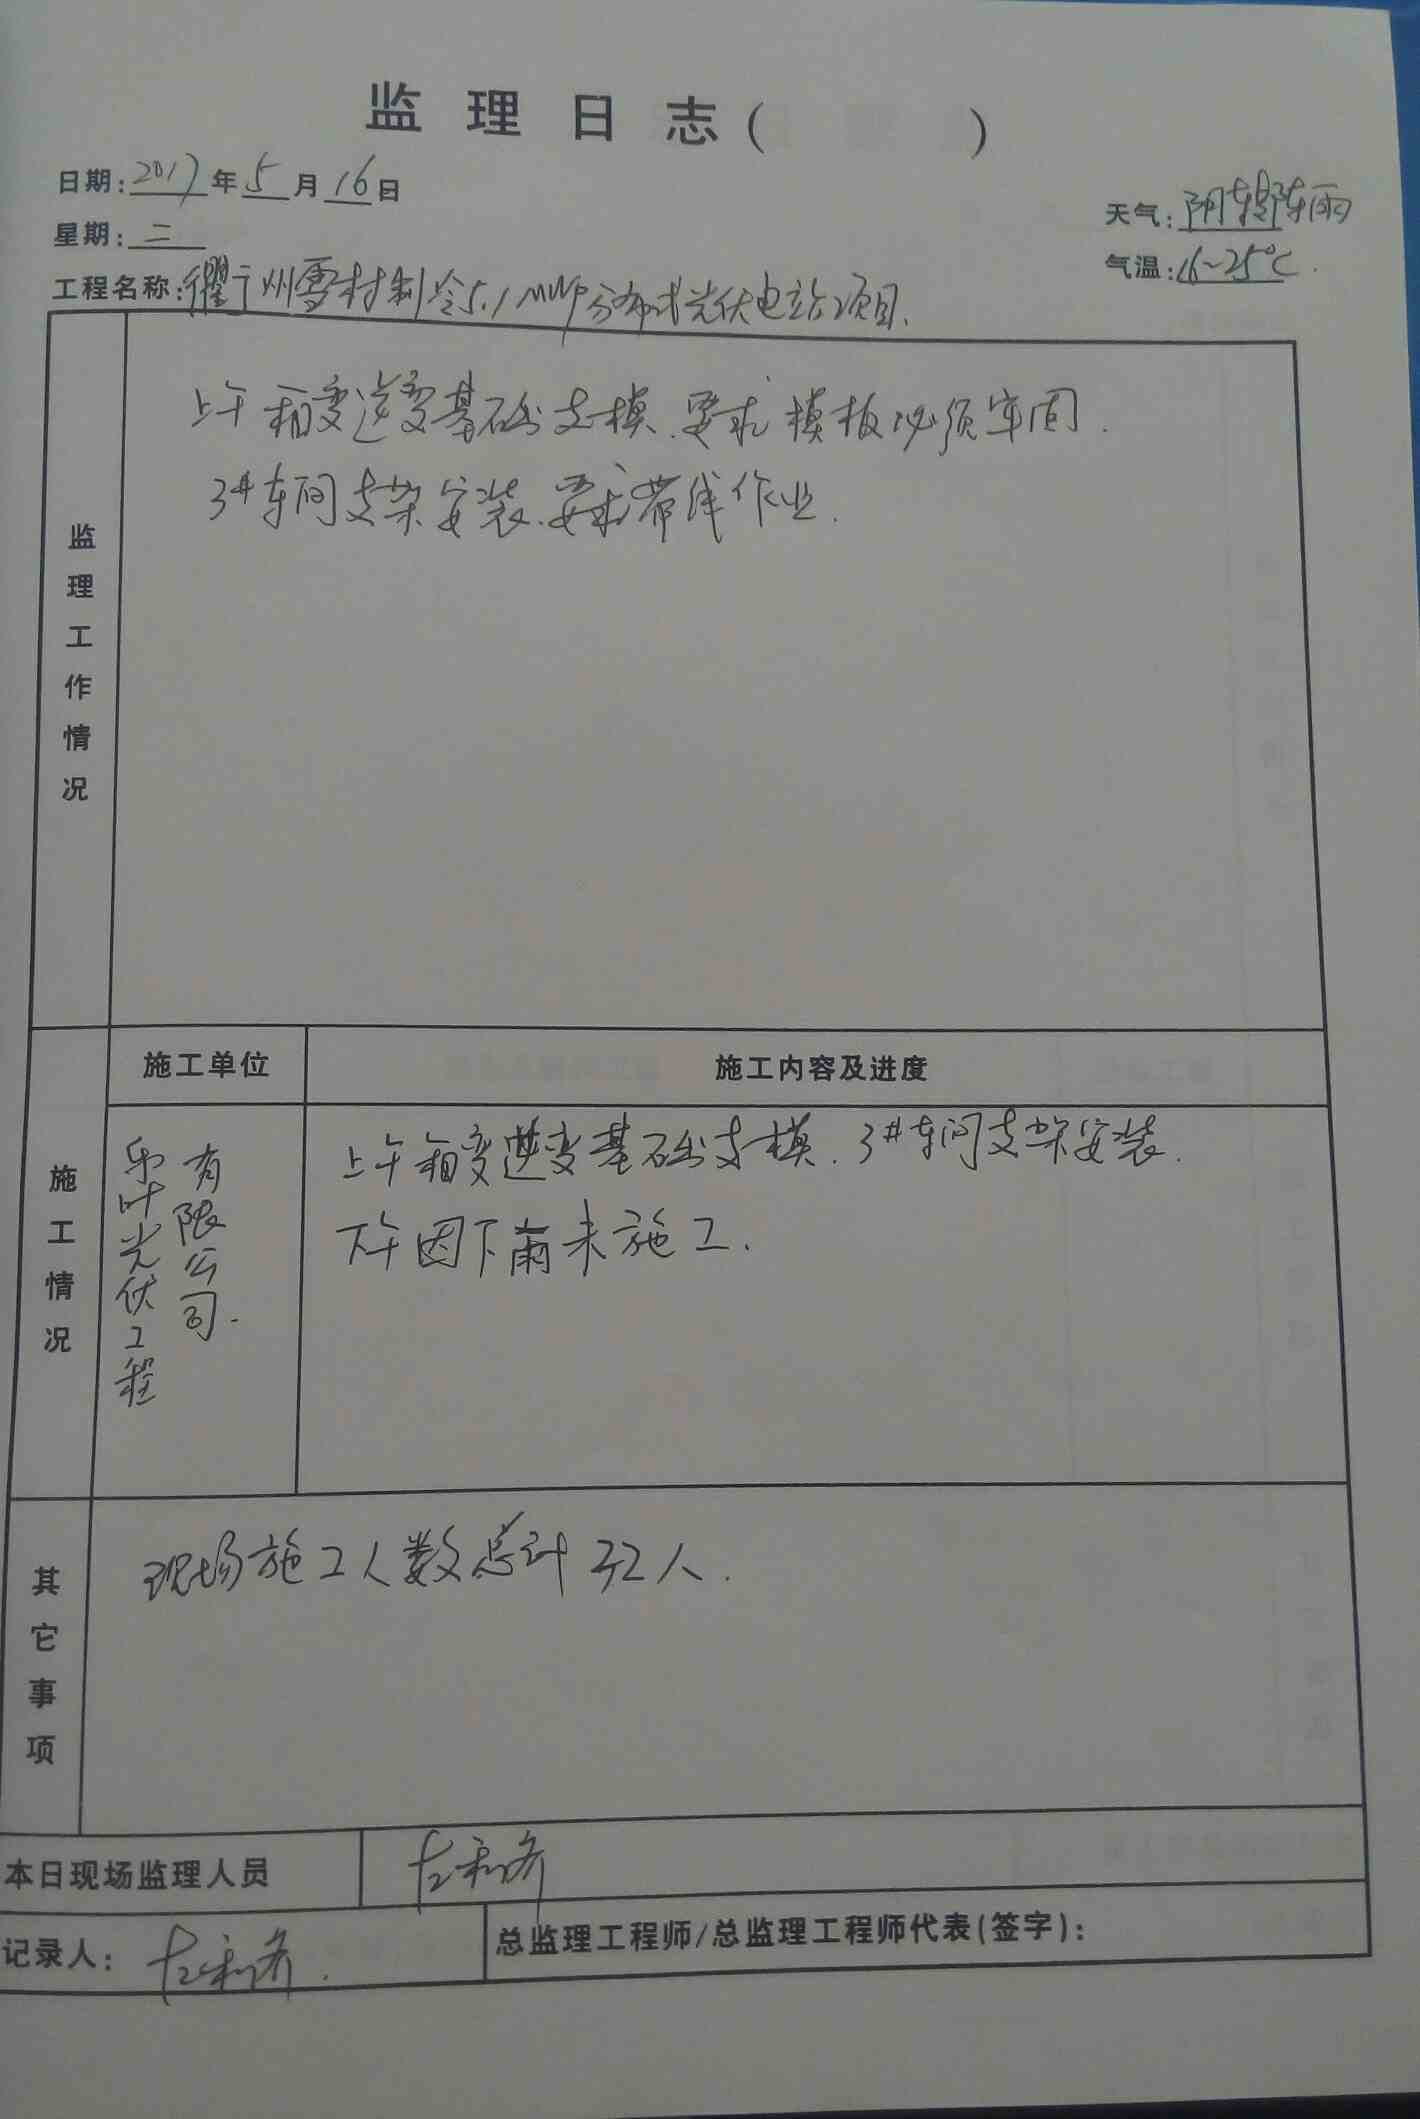 监理日志( )
日期:2017年5月16日
天气:阴转阵雨
星期:二
气温:16~25℃.
工程名称:衢州雪村制冷5.1MWp分布式光伏电站项目.
监理工作情况
上午箱变逆变基础支模.要求模板必须牢固.
3#车间支架安装.要求带线作业.
施工单位
施工内容及进度
施工情况
乐叶光伏工程
有限公司.
上午箱变逆变基础支模.3#车间支架安装.
下午因下雨未施工.
其它事项
现场施工人数总计32人.
本日现场监理人员
记录人:
总监理工程师/总监理工程师代表(签字):